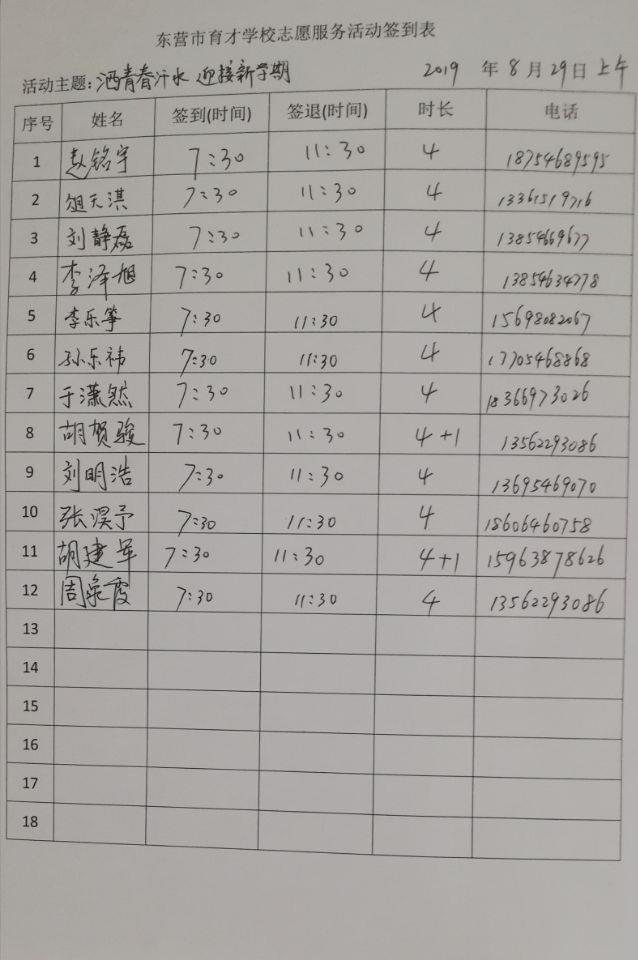 东营市育才学校志愿服务活动签到表
活动主题:洒青春汗水 迎接新学期 2019 年 8 月 29 日 上午
序号 姓名 签到(时间) 签退(时间) 时长 电话
1 赵铭宇 7:30 11:30 4 18754689595
2 天淇 7:30 11:30 4 13361519716
3 刘静磊 7:30 11:30 4 13854669677
4 李泽旭 7:30 11:30 4 13854634778
5 李乐筝 7:30 11:30 4 15698082067
6 孙东祎 7:30 11:30 4 17705468868
7 于潇然 7:30 11:30 4 18366973026
8 胡贺骏 7:30 11:30 4+1 13562293086
9 刘明浩 7:30 11:30 4 13695469070
10 张淏予 7:30 11:30 4 18606460758
11 胡建军 7:30 11:30 4+1 15963878626
12 周泉霞 7:30 11:30 4 13562293086
13
14
15
16
17
18